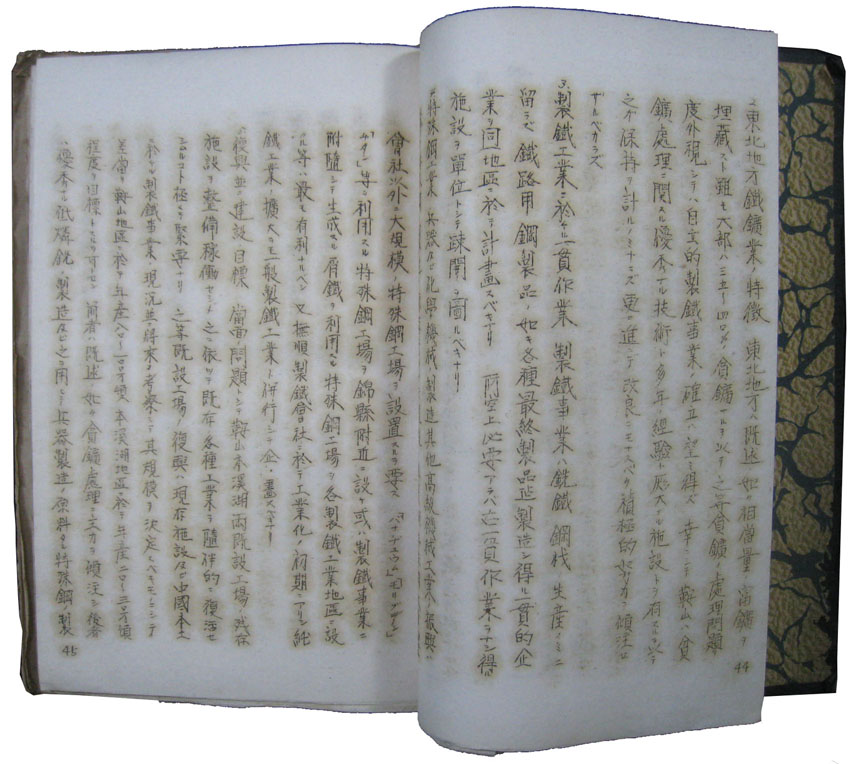 東北地方鐵鑛業ノ特徴 東北地方ハ既述ノ如ク相當量ノ富鑛ヲ
埋藏スト雖モ大部ハ三五-四〇%ノ貧鑛ナルヲ以テ之等貧鑛ノ處理問題
度外視シテハ自立的製鐵事業ノ確立ハ望ミ得ズ 幸ニシテ鞍山ハ貧
鑛處理ニ関スル優秀ナル技術ト多年ノ經驗ト厖大ナル施設トヲ有スルヲ以テ
之ガ保持ヲ計ルノミナラズ更ニ進ンデ改良ニモスベク積極的努力ヲ傾注セ
ザルベカラズ
3、製鐵工業ニ於ケル一貫作業 製鐵事業ハ銑鐵 鋼材ノ生産ノミニ
留ラズ 鐵路用鋼製品ノ如キ各種最終製品迄製造シ得ル一貫的企
業ヲ同地區ニ於テ計畫スベキナリ 防空上必要アラバ一貫作業ヲナシ得ル
施設ヲ單位トシテ疎開ヲ圖ルベキナリ
特殊鋼工業 兵器及ビ化學機械製造其他高級機械工業ノ振興ハ
44
會社以外ノ大規模ノ特殊鋼工場ヲ設置スルヲ要ス 「バナヂュウム」「モリブデン」
「チタン」等ノ利用スル特殊鋼工場ヲ錦縣附近ニ設ケ或ハ製鐵事業ニ
附隨シテ生成スル屑鐵ヲ利用スル特殊鋼工場ヲ各製鐵工業地區ニ設
クル等ハ最モ有利ナルベシ 又撫順製鐵會社ニ於テ工業化ノ初期ニアリシ純
鐵工業ノ擴大ヲモ一般製鐵工業ト併行シテ企畫スベキナリ
復興並ニ建設目標 當面問題トシテ鞍山本溪湖兩既設工場ノ残存
施設ヲ整備稼働セシメ之ニ依ツテ既存各種工業ヲ隨伴的ニ復活セ
シムルコト極メテ緊要ナリ 之等既設工場ノ復興ハ現存施設及ビ中國本土
ニ於ケル製鐵事業ノ現況並ニ將來ヲ考察シテ其規模ヲ決定スベキモノニシテ
差當リ鞍山地區ニ於テ年産 本溪湖地區ニ於テ年産二〇-三〇万噸
程度ヲ目標トスルヲ可トシ 前者ハ既述ノ如ク貧鑛處理ニ主力ヲ傾注シ後者
ハ優秀ナル低燐銑ノ製造及ビ之ヲ用ヒテ兵器製造ノ原料タル特殊鋼製
45